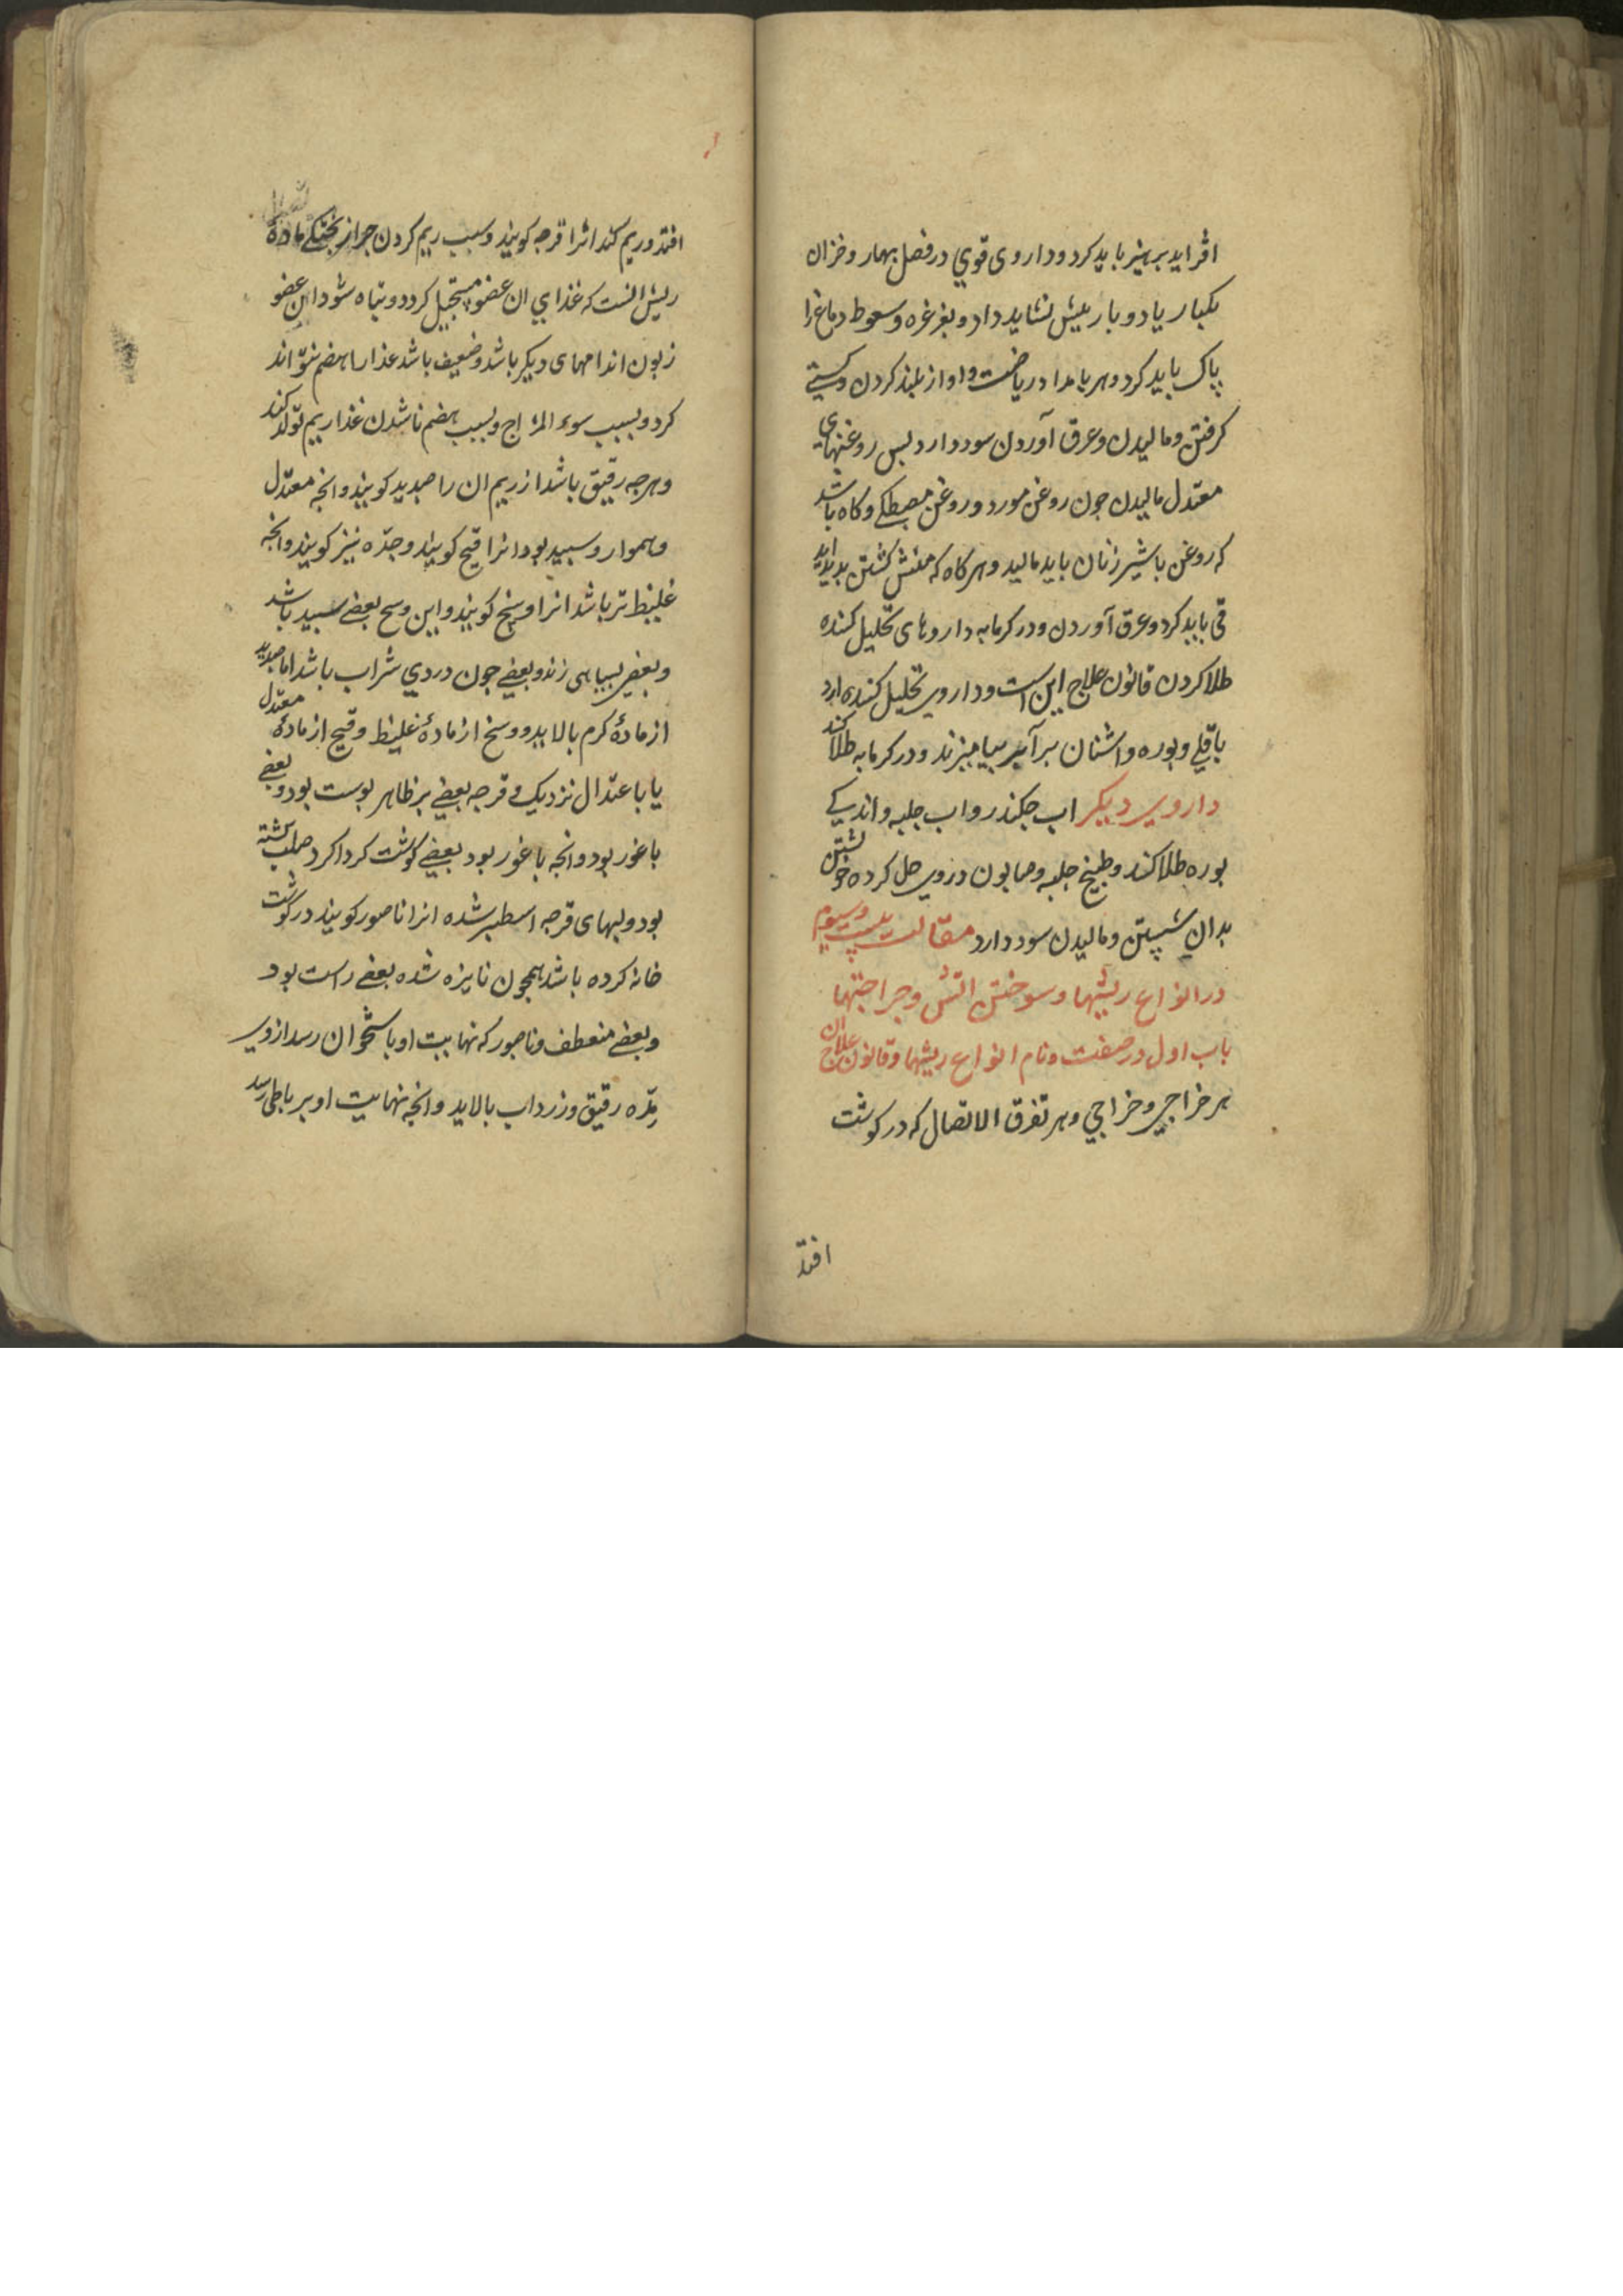 افزاید برهیز باید کرد و داروی قوي در فصل بهار و خزان
یکبار یا دو بار بیش نشاید داد و بغرغره و سعوط دماغ را
پاک باید کرد و هر بامداد ریاضت و اواز بلند کردن و کستي
کرفتن و مالیدن و عرق آوردن سود دارد بس روغنهای
معتدل مالیدن جون روغن مورد و روغن مصطکي و کاه باشد
که روغن با شیر زنان باید مالید و هر کاه که منش کشتن بدید اید
قی باید کرد و عرق آوردن و در کرمابه داروهای تحلیل کننده
طلا کردن قانون علاج این است و داروی تحلیل کننده ارد
باقلي و بوره و اشنان برآبر بیامیزند و در کرمابه طلا کند
داروی دیکر اب جکندر و اب حلبه و اندکي
بوره طلا کند و طبیخ حلبه و صابون در وی حل کرده خوشتن
بدان شستن و مالیدن سود دارد مقالت بیست و سیوم
در انواع ریشها و سوختن اتش و جراحتها
باب اول در صفت و نام انواع ریشها و قانون علاج ان
هر خراجي و خراجي و هر تفرق الاتصال که در کوشت
افتد
افتد و ریم کند انرا قرحه کویند و سبب ریم کردن جز از بختکي مادهٔ
ریش انست که غذاي ان عضو مستحیل کردد و تباه شود این عضو
زبون اندامهای دیکر باشد و ضعیف باشد غذا را هضم نتواند
کرد و بسبب سوء المزاج و بسبب هضم ناشدن غذا ریم تولد کند
و هرجه رقیق باشد از ریم ان را صدید کویند و انجه معتدل
و هموار و سبید بود انرا قیح کویند و مدّه نیز کویند و انجه
غلیظ تر باشد انرا وسخ کویند و این وسخ بعضي سبید باشد
و بعضي بسیاهی زند و بعضي جون دردي شراب باشد اما صدید
از مادهٔ کرم بالاید و وسخ از مادهٔ غلیظ و قیح از مادهٔ معتدل
یا باعتدال نزدیک و قرحه بعضي بر ظاهر بوست بود و بعضي
با غور بود و انجه با غور بود بعضي کوشت کرداکرد صلب کشته
بود و لبهای قرحه اسطبر شده انرا ناصور کویند در کوشت
خانه کرده باشد همجون نایزه شده بعضي راست بود
و بعضي منعطف و ناصور که نهایت او باستخوان رسد از وی
مِدّه رقیق و زرداب بالاید و انجه نهایت او بر باطی رسد